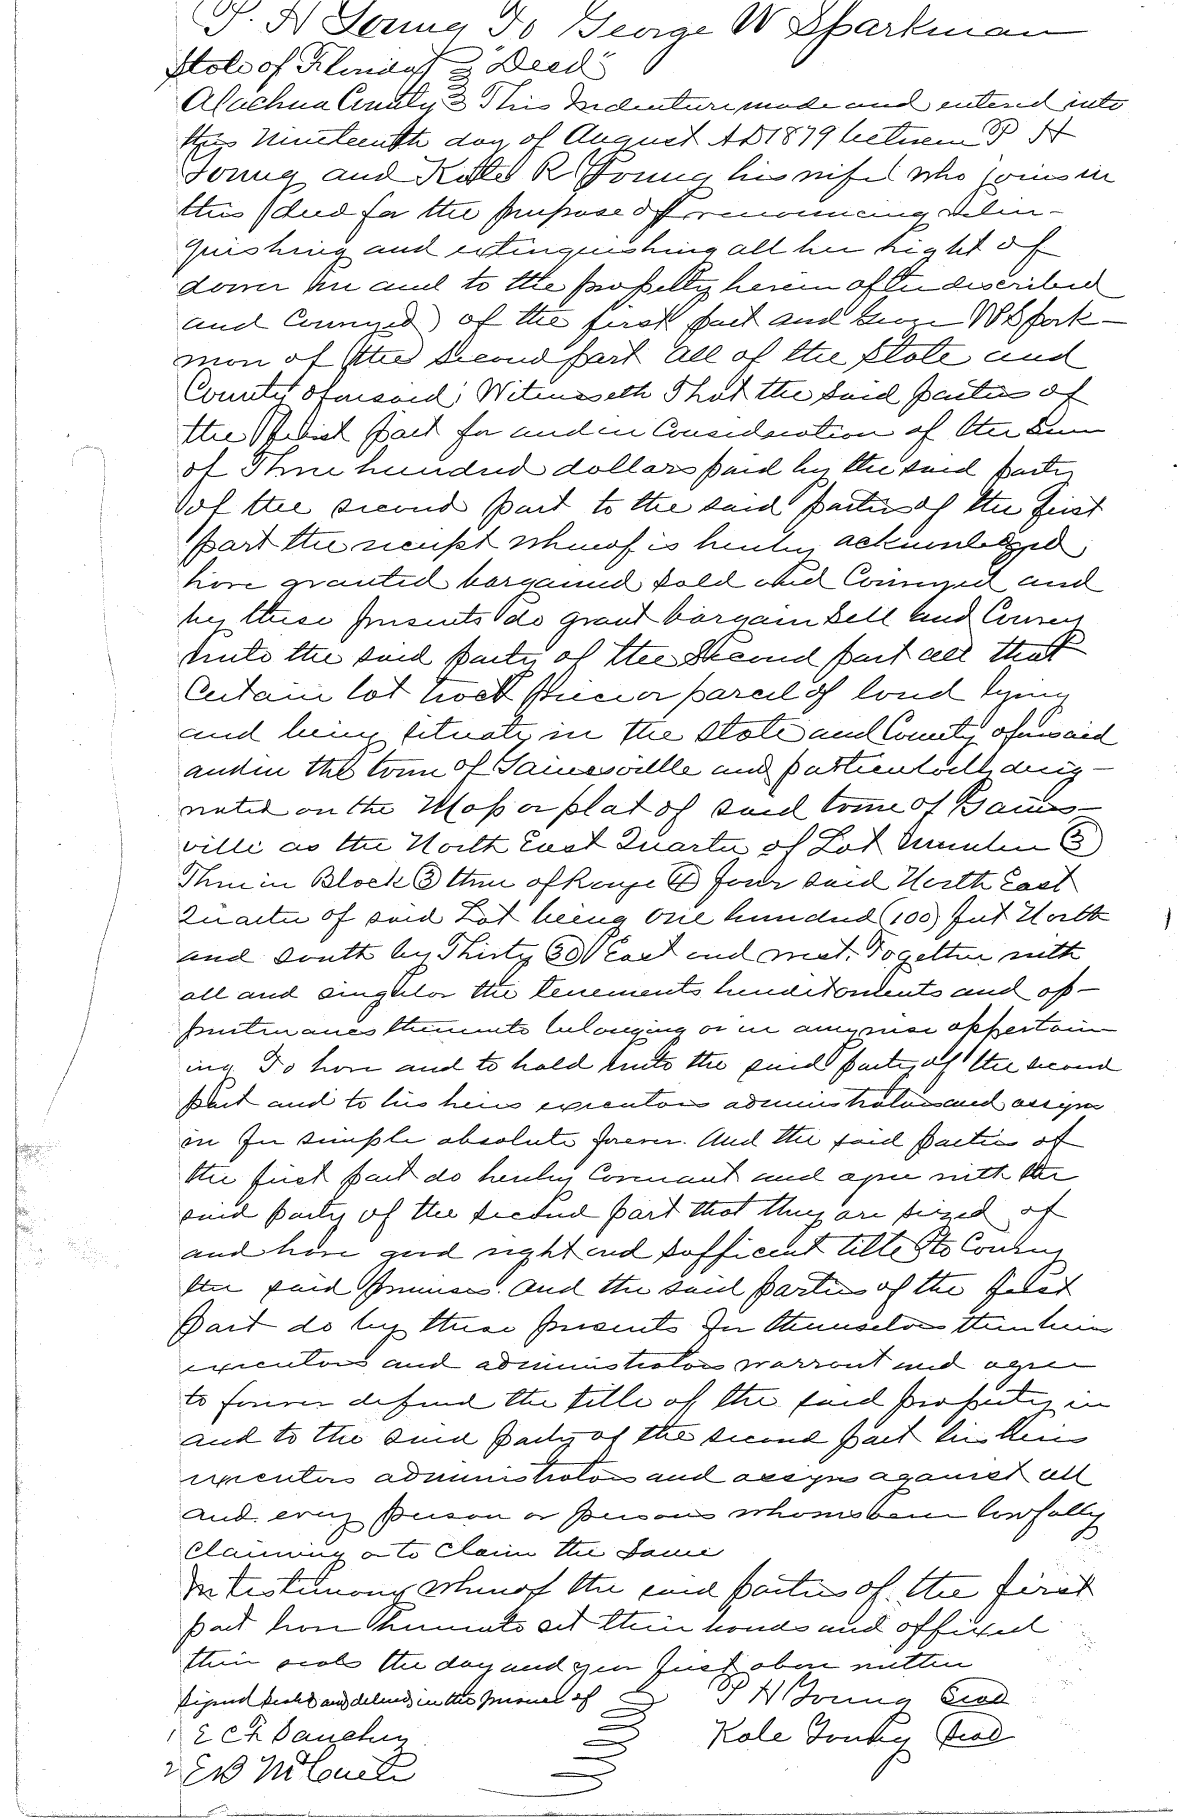 P. H Young To George W Sparkman
State of Florida } "Deed"
Alachua County } This Indenture made and entered into
this Nineteenth day of August AD 1879 between P H
Young and Kate R Young his wife (who joins in
this deed for the purpose of renouncing relin-
quishing and extinguishing all her right of
dower in and to the property herein after discribed
and Conveyed) of the first part and George W Spark-
man of the second part all of the State and
County aforesaid; Witnesseth That the said parties of
the First part for and in Consideration of the Sum
of Three hundred dollars paid by the said party
of the second part to the said parties of the first
part the receipt whereof is hereby acknowledged
have granted bargained sold and Conveyed and
by these presents do grant bargain Sell and Convey
unto the said party of the Second part all that
Certain lot tract piece or parcel of land lying
and being situate in the State and County aforesaid
and in the town of Gainesville and particularly desig-
nated on the Map or plat of said town of Gaines-
ville as the North East Quarter of Lot Number (3)
Three in Block (3) three of Range (4) four said North East
Quarter of said Lot being one hundred (100) feet North
and south by Thirty (30) East and west. Together with
all and singular the tenements hereditaments and ap-
purtenances thereunto belonging or in anywise appertain
ing To have and to hold unto the said party of the second
part and to his heirs executors administrators and assigns
in fee simple absolute forever. And the said parties of
the first part do hereby Covenant and agree with the
said party of the second part that they are siezed of
and have good right and sufficent title to Convey
the said premises. And the said parties of the first
part do by these presents for themselves their heirs
executors and administrators warrant and agree
to forever defend the title of the said property in
and to the said party of the second part his heirs
executors administrators and assigns against all
and every person or persons whomsoever lawfully
claiming or to claim the same
In testimony whereof the said parties of the first
part have hereunto set their hands and affixed
their seals the day and year first above written
Signed Sealed and delivered in the presence of } P H Young Seal
1 E C F Sanchez } Kate Young Seal
2